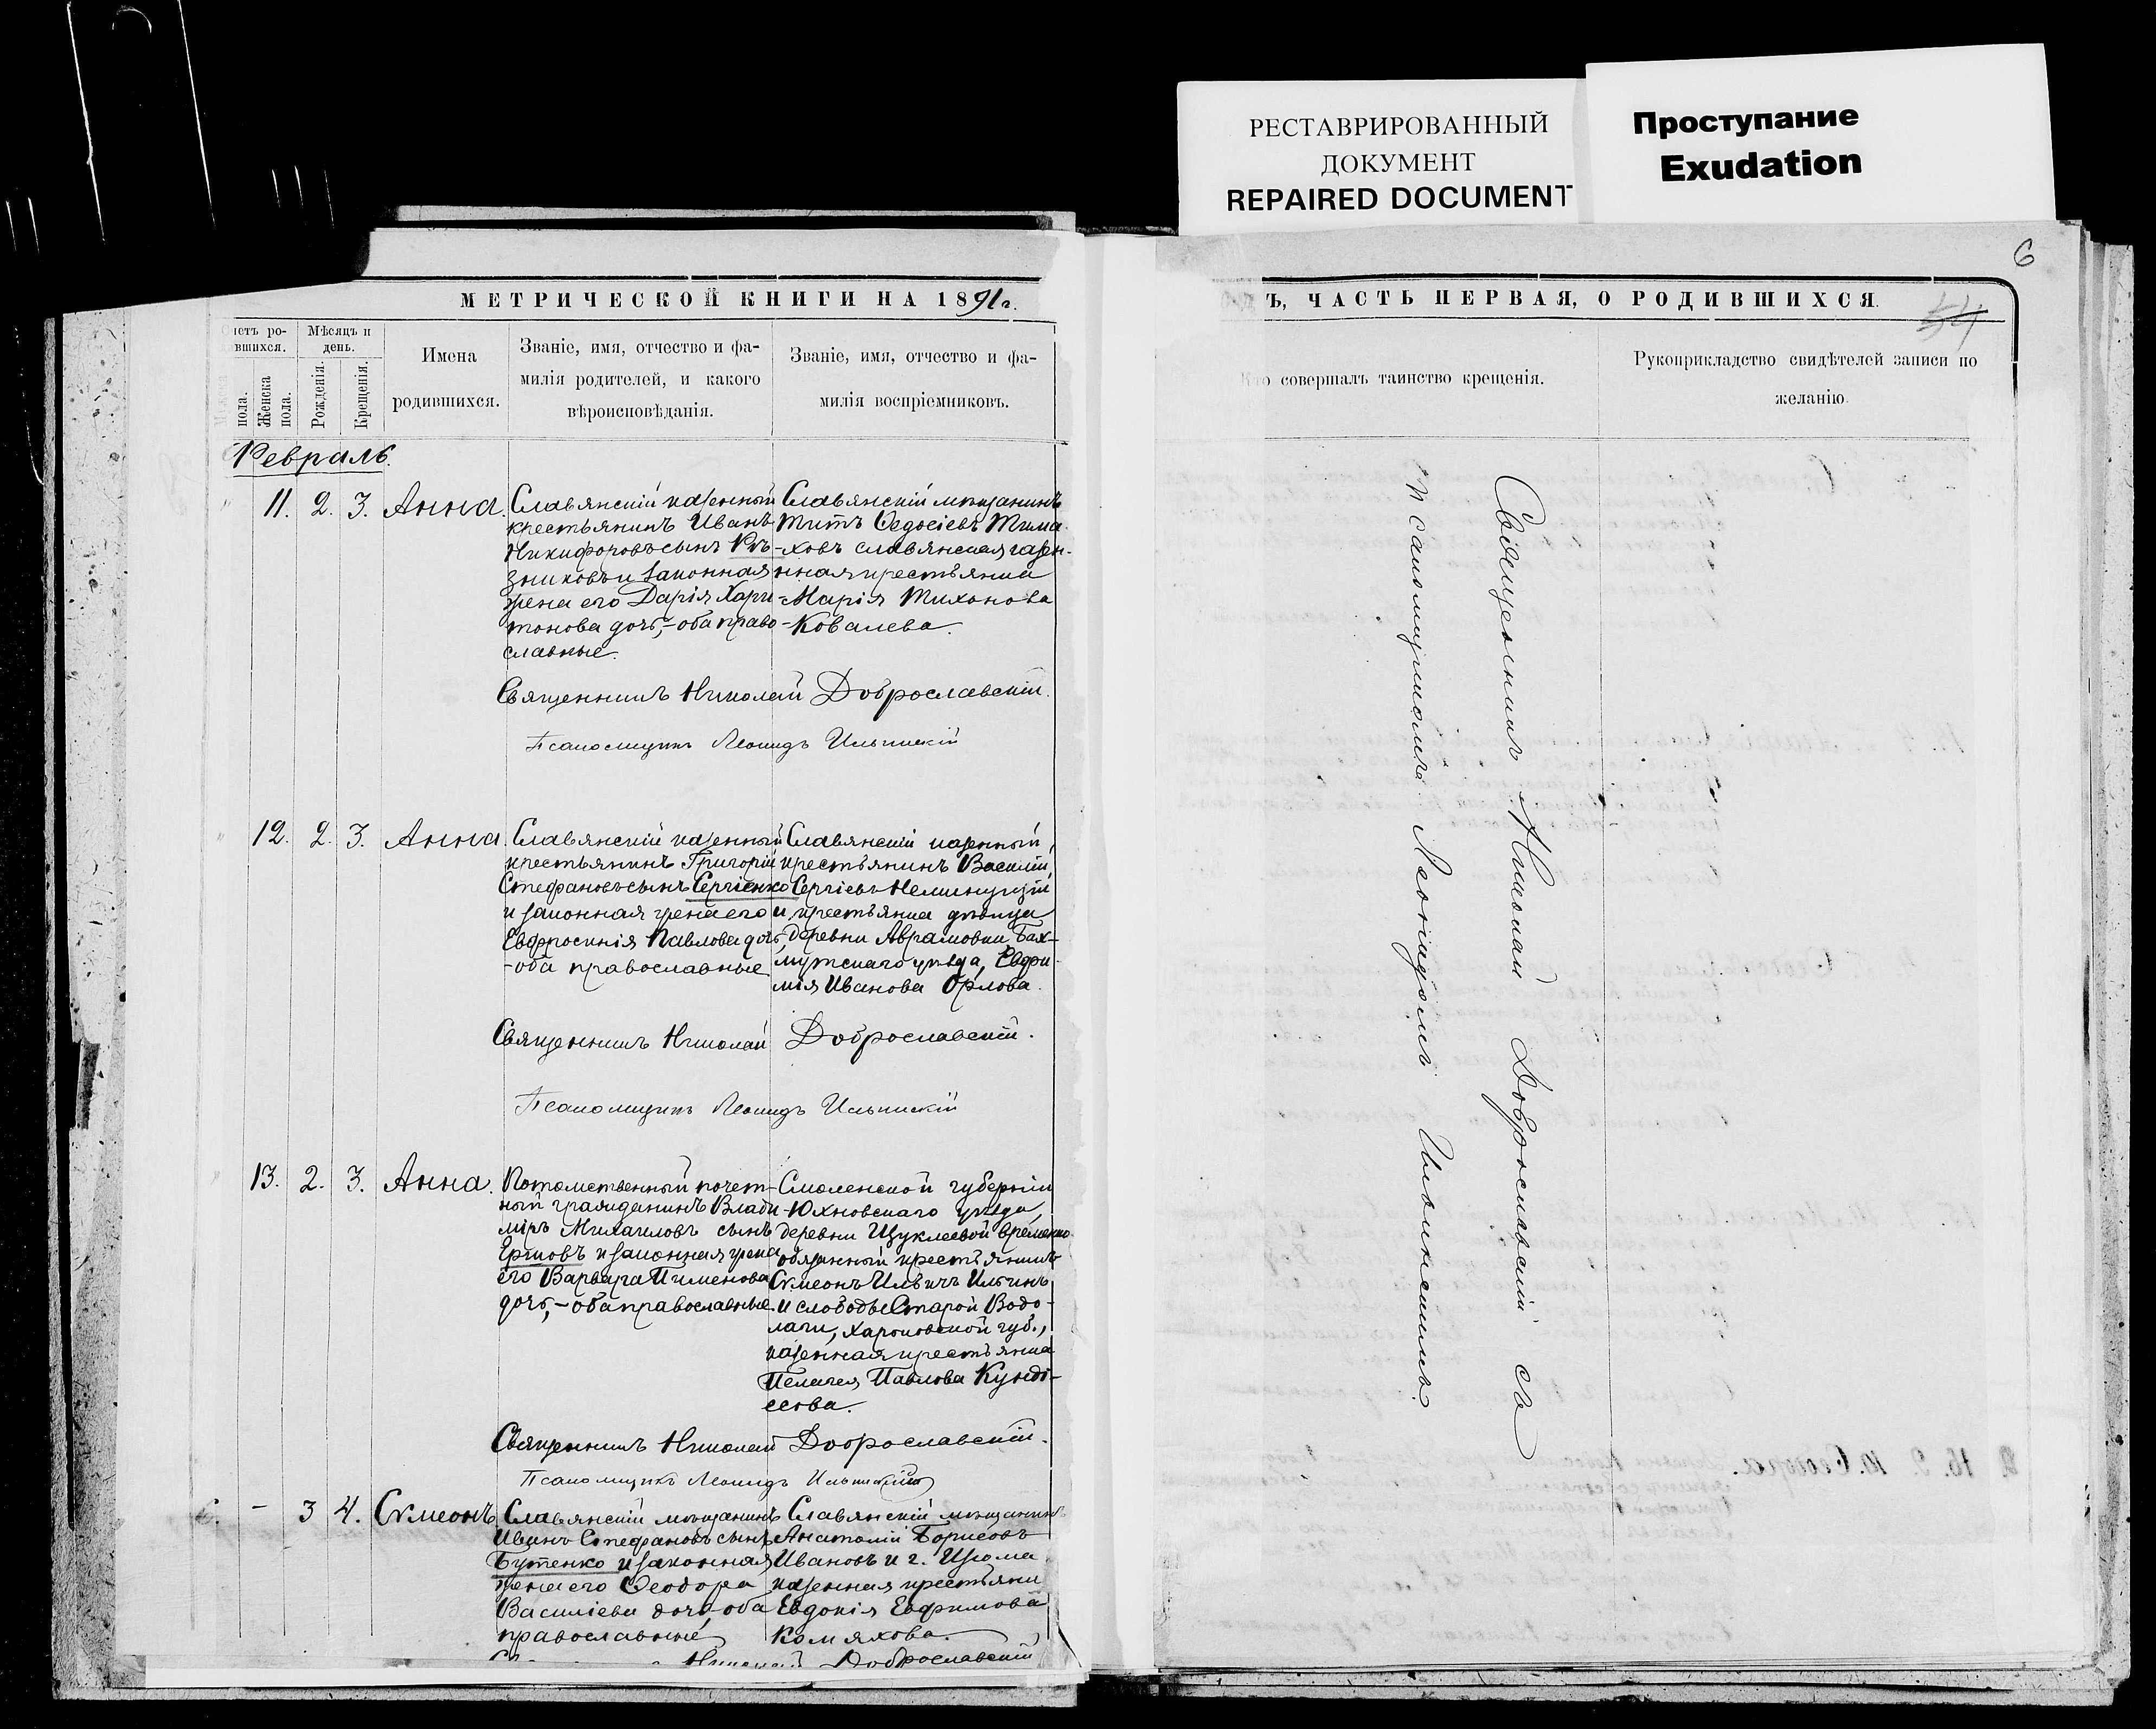 РЕСТАВРИРОВАННЫЙ
ДОКУМЕНТ
REPAIRED DOCUMENT
Проступание
Exudation
6
МЕТРИЧЕСКОЙ КНИГИ НА 1891 г.
четъ ро-
вшихся.
Мѣсяцъ и
день.
пола.
Женска
пола.
Рожденія.
Крещенія.
Имена
родившихся.
Званіе, имя, отчество и фа-
милія родителей, и какого
вѣроисповѣданія.
Званіе, имя, отчество и фа-
милія воспріемниковъ.
Февраль.
11. 2. 3. Анна.
Славянскій казенный
крестьянинъ Иванъ
Никифоровъ сынъ Рѣ-
зниковъ и законная
жена его Дарія Хари-
тонова дочь,- оба право-
славные.
Славянскій мѣщанинъ
Титъ Ѳедосіевъ Тима-
ховъ славянская казен-
ная крестьянка
Марія Тихонова
Ковалева.
Священникъ Николай Доброславскій.
Псаломщикъ Леонидъ Ильинскій
12. 2. 3. Анна.
Славянскій казенный
крестьянинъ Григорій
Стефановъ сынъ Сергіенко
и законная жена его
Евфросинія Павлова дочь,
-оба православные
Славянскій казенный
крестьянинъ Василій
Сергіевъ Неминущій
и крестьянка дѣвица
деревни Абрамовки, Бах-
мутскаго уѣзда, Евфи-
мія Иванова Орлова.
Священникъ Николай Доброславскій.
Псаломщикъ Леонидъ Ильинскій
13. 2. 3. Анна.
Потомственный почет-
ный гражданинъ Влади-
міръ Михаиловъ сынъ
Ершовъ и законная жена
его Варвара Пименова
дочь,- оба православные.
Смоленской губерніи
Юхновскаго уѣзда,
деревни Щуклеевой временно-
обязанный крестьянинъ
Сѵмеонъ Ильичъ Ильинъ
и слободы Старой Водо-
лаги, Харьковской губ.,
казенная крестьянка
Пелагея Павлова
Священникъ Николай Доброславскій.
Псаломщикъ Леонидъ Ильинскій
- 3 4. Сѵмеонъ
Славянскій мѣщанинъ
Иванъ Стефановъ сынъ
Бутенко и законная
жена его Ѳеодора
Василіева дочь,- оба
православные
Славянскій мѣщанинъ
Анатолій Борисовъ
Ивановъ и г. Изюма
казенная крестьянка
Евдокія Евфимова
Комяхова.
Николай Доброславскій
Ъ, ЧАСТЬ ПЕРВАЯ, О РОДИВШИХСЯ.
Кто совершалъ таинство крещенія.
Рукоприкладство свидѣтелей записи по
желанію.
Священникъ Николай Доброславскій съ
псаломщикомъ Леонидомъ Ильинскимъ.